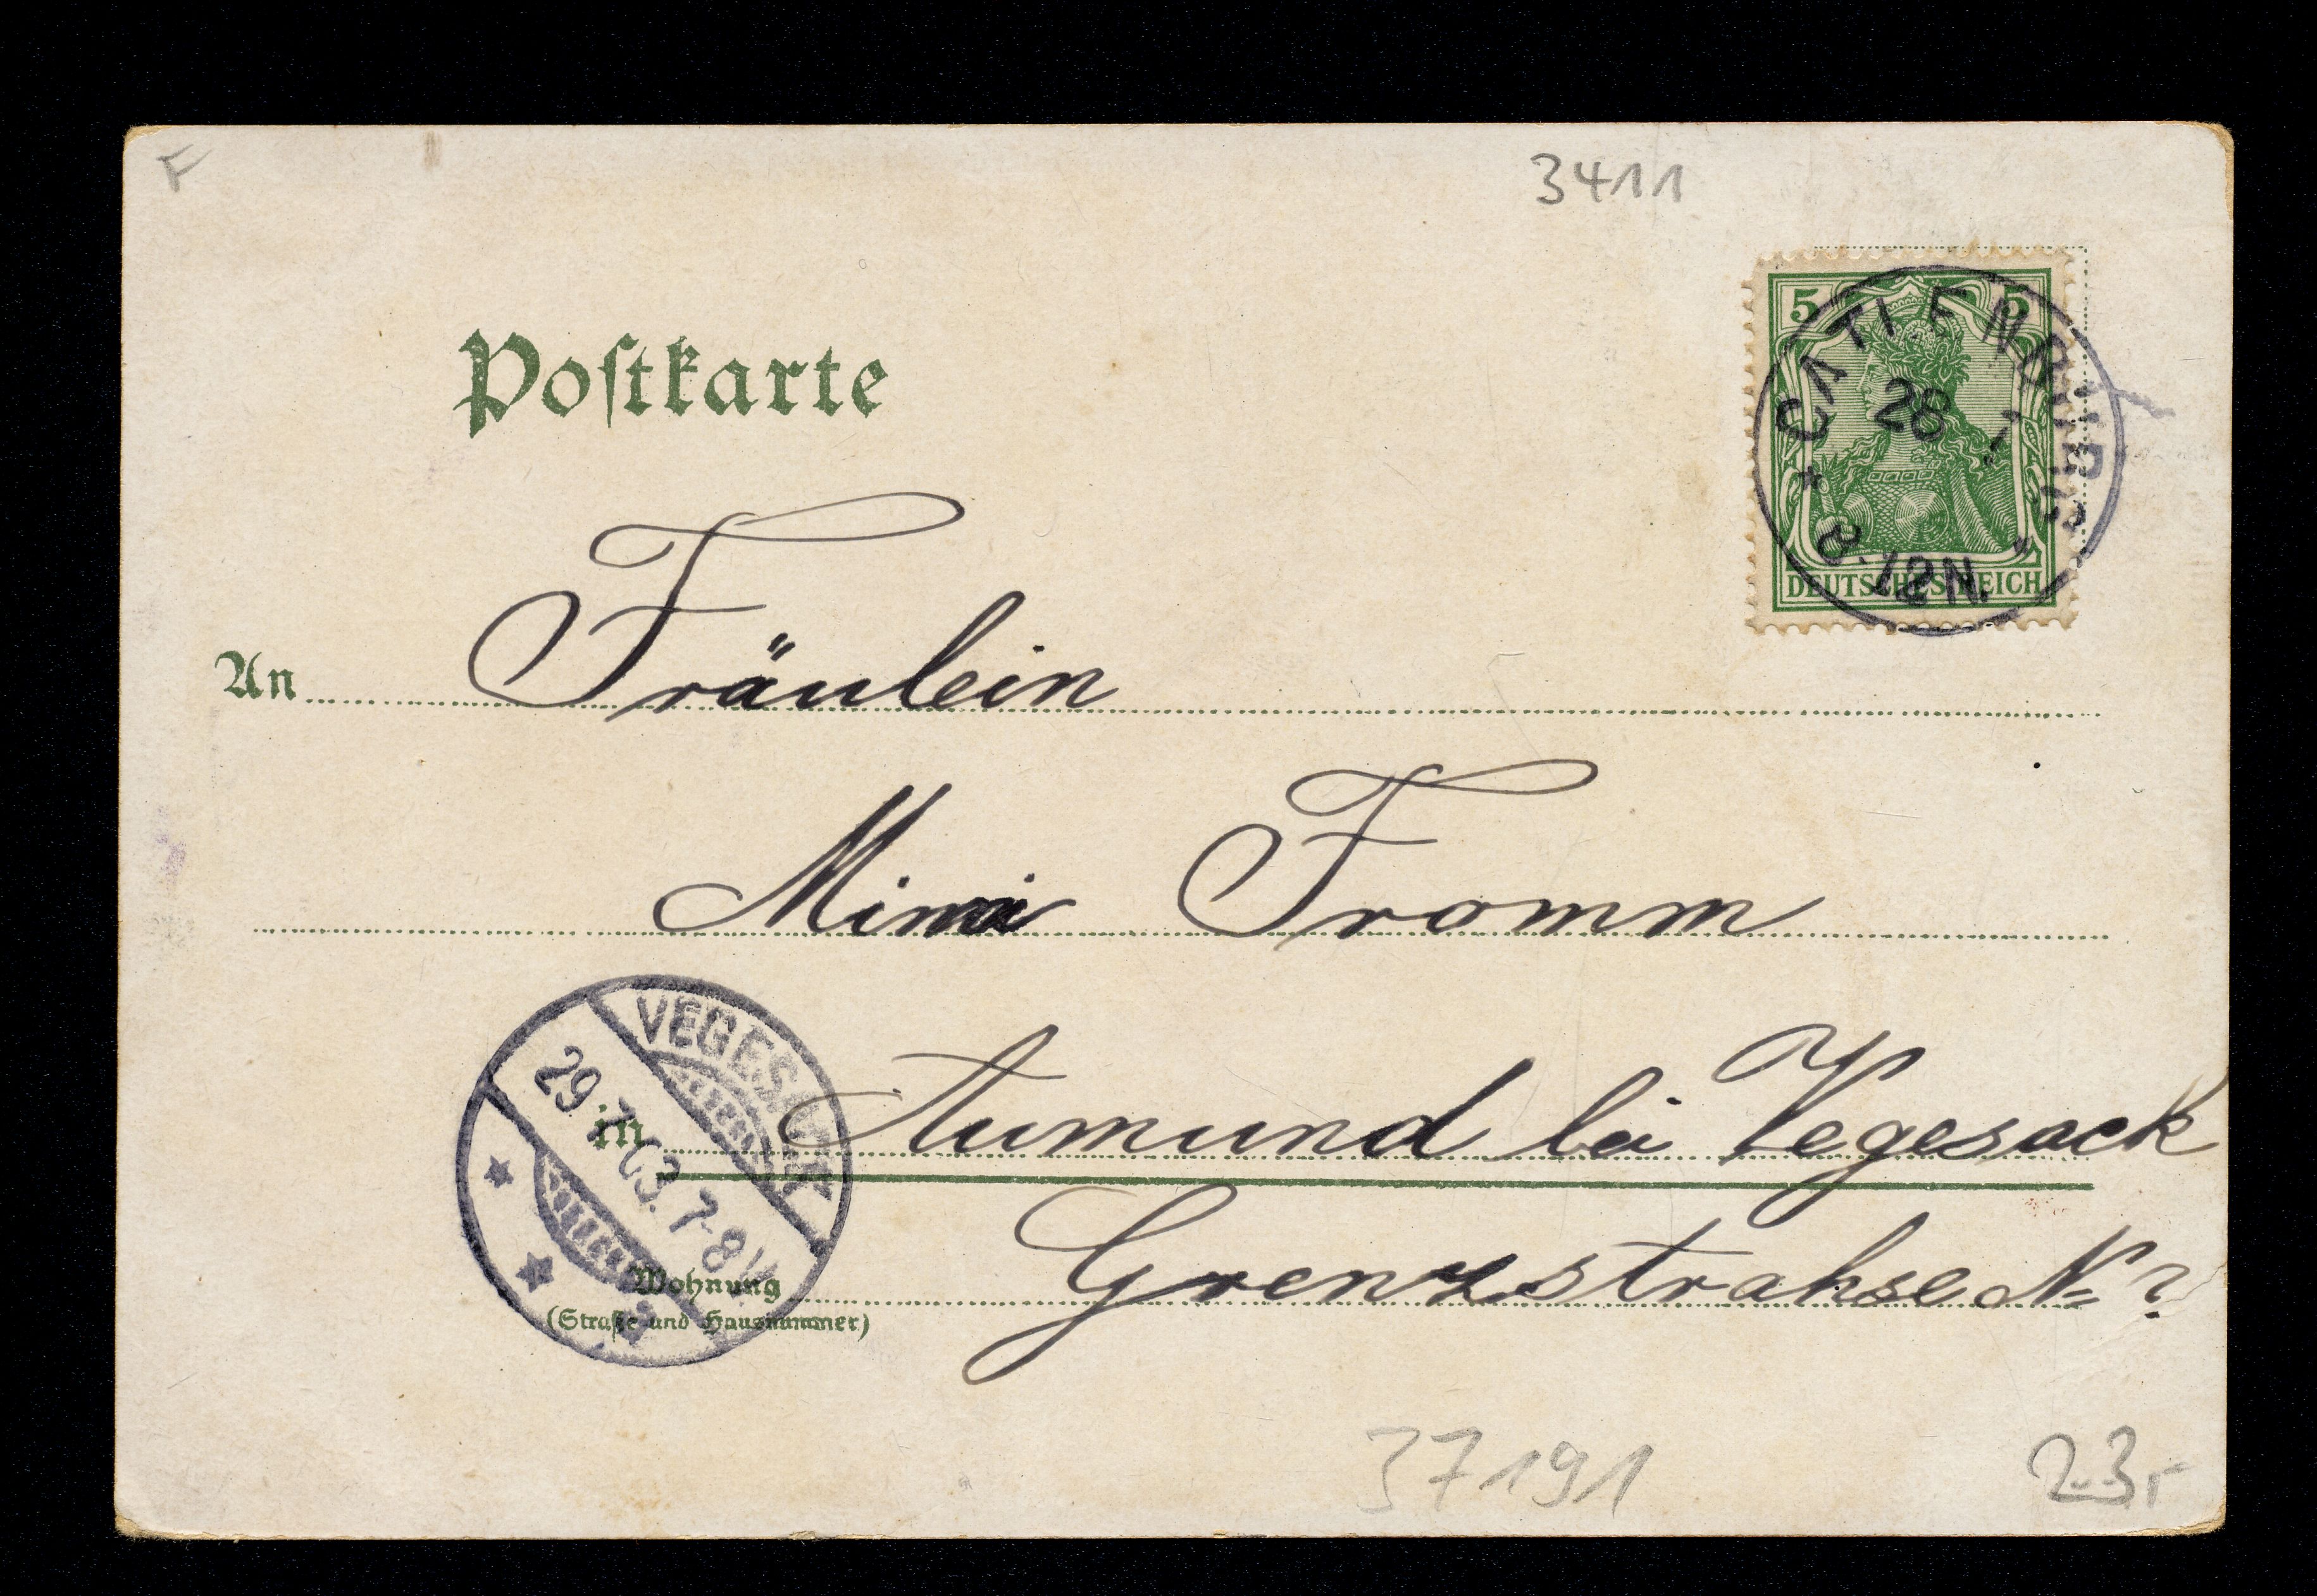 F
3411
Postkarte
5 5
CATLENBURG
28 7
8-12N.
DEUTSCHES REICH
An Fräulein
Mimi Fromm
VEGESACK
29.7.03. 7-8V.
in Aumund bei Vegesack
Wohnung Grenzstrahse N= ?
(Straße und Hausnummer)
37191